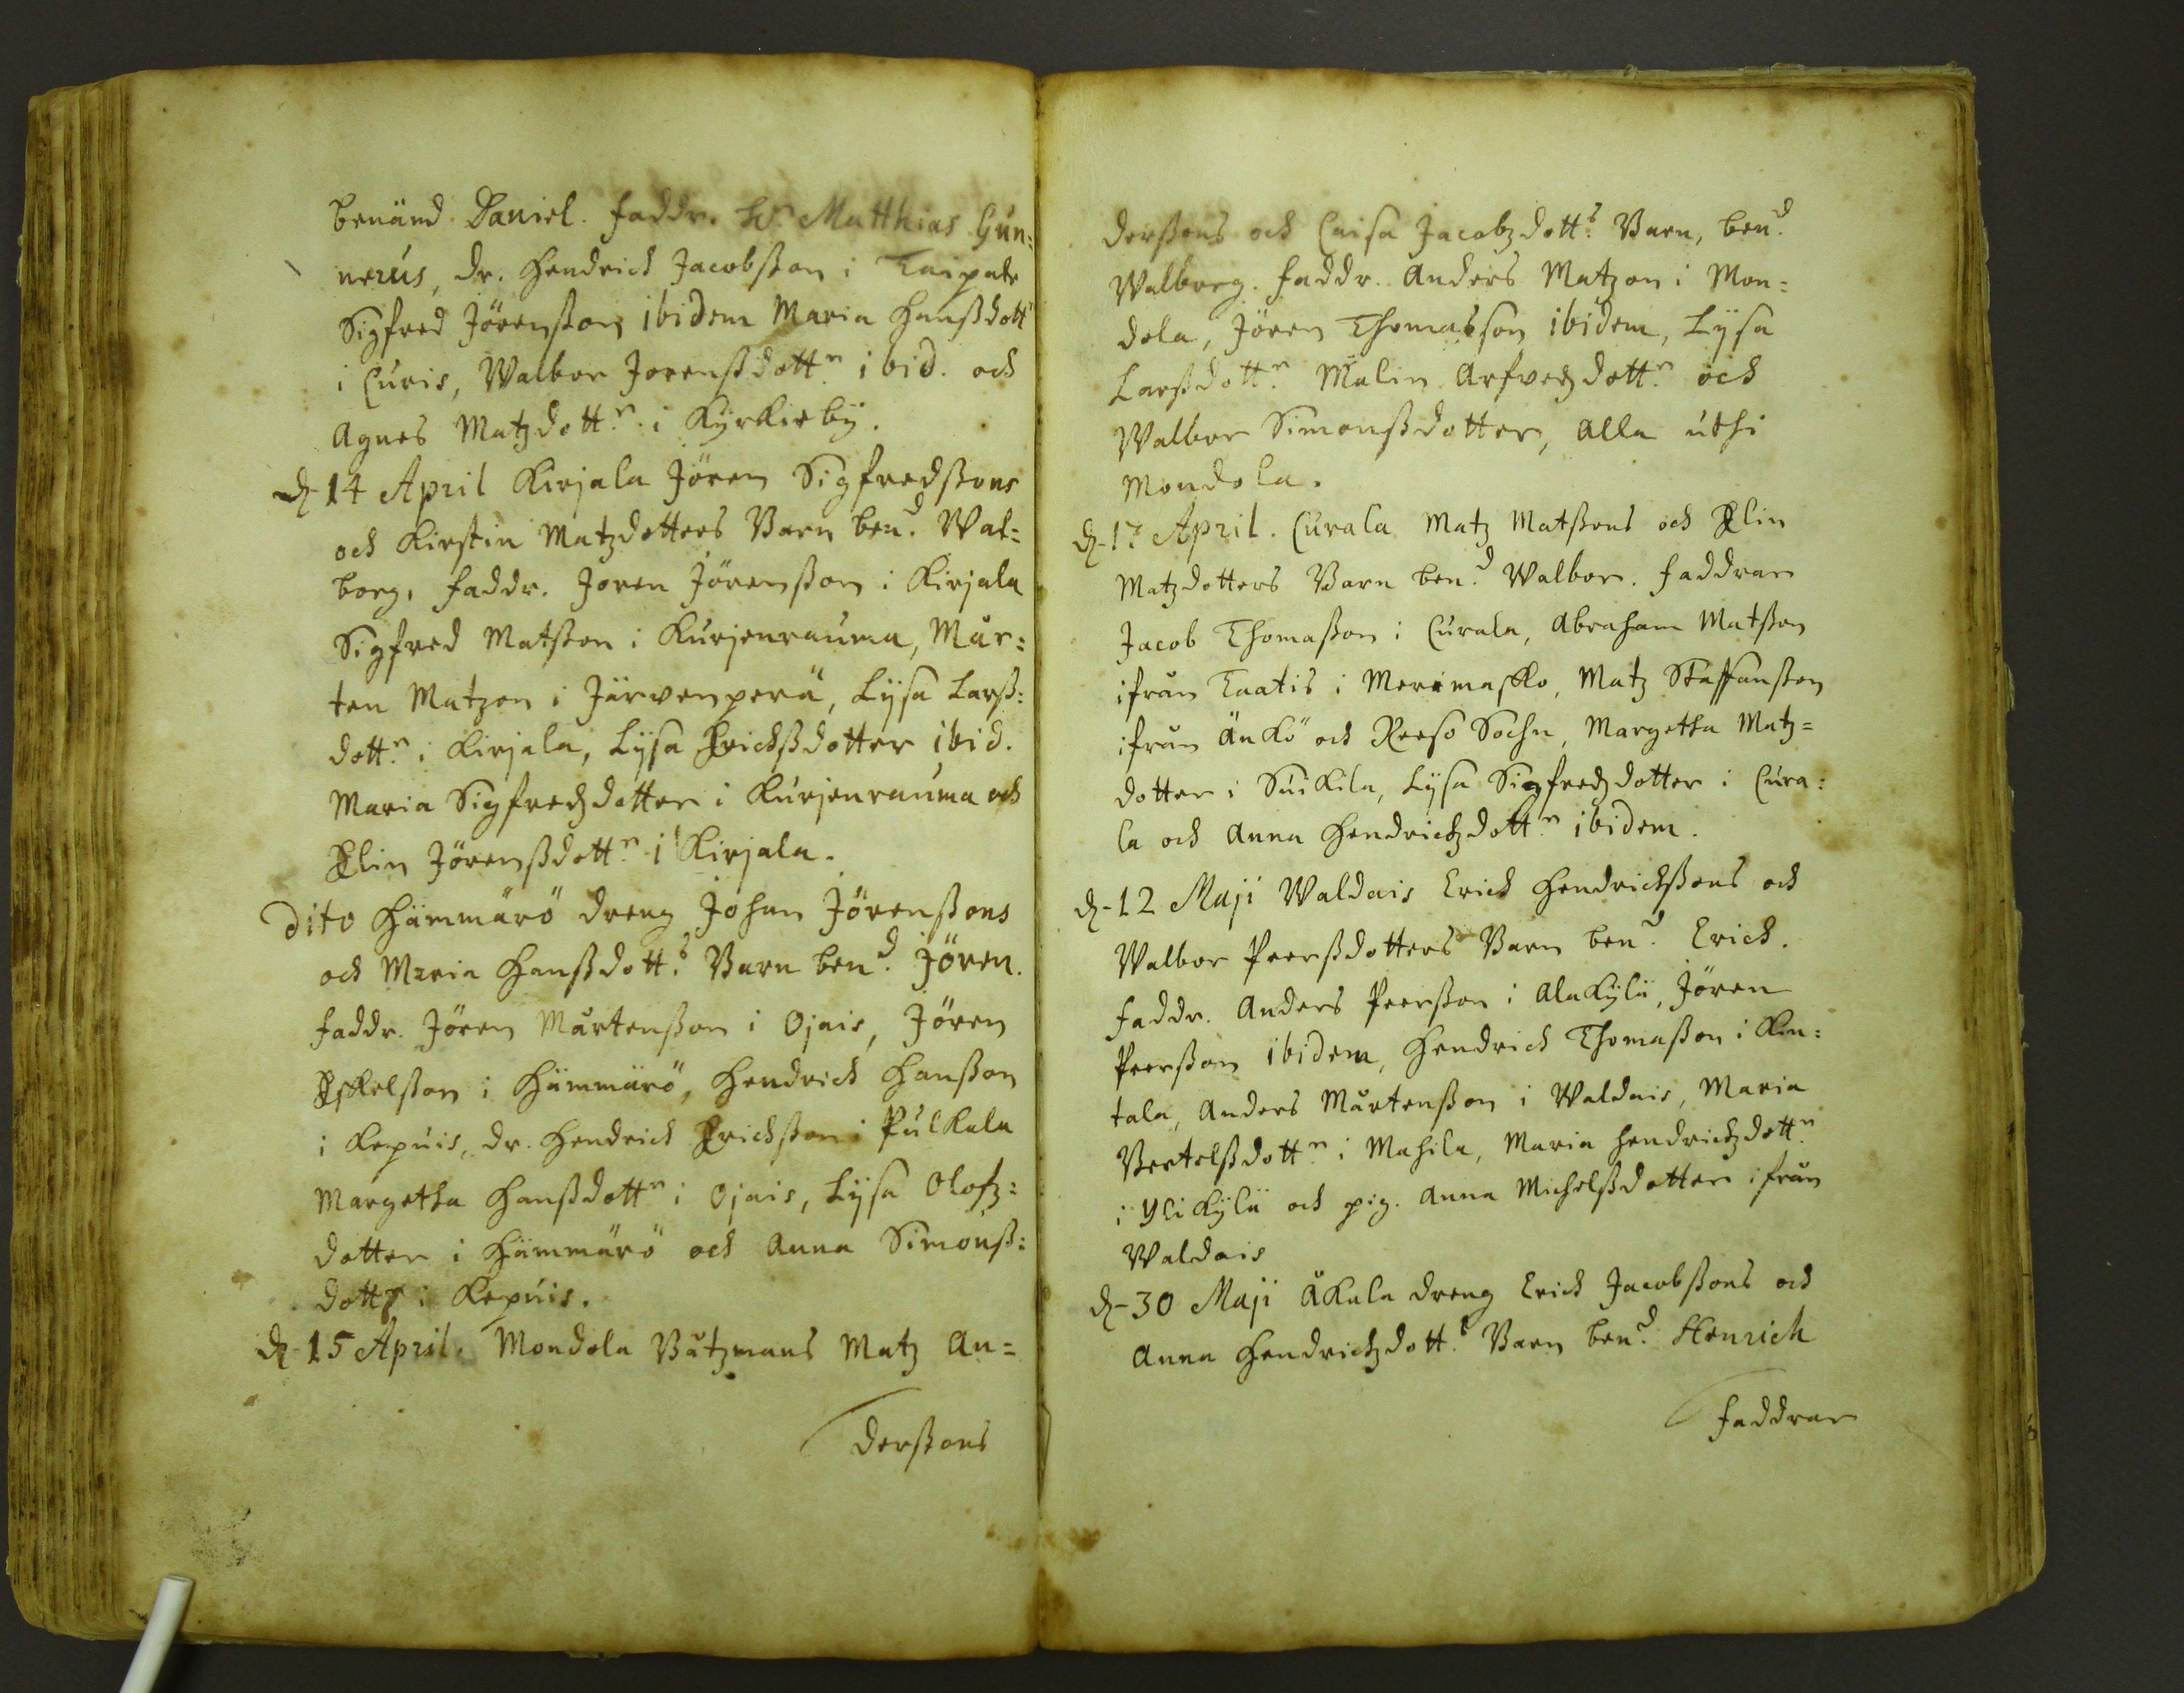 benämd Daniel. faddr. Hr. Matthias Gun:
nerus, dr. Hendrich Jacobsson i Taipale
Sigfred Jörensson ibidem Maria Hanssdottr
i Curis, Walbor Jorenssdottr ibid. och
Agnes Matzdottr i Kyrkieby.
d. 14 April Kirjala Jören Sigfredssons
och Kirstin Matzdotters Barn bend. Wal=
borg, faddr. Joren Jörensson i Kirjala
Sigfred Matsson i Kurjenrauma, Mår:
ten Matzon i Järvenperä, Lijsa Larss:
dottr i Kirjala, Lijsa Erichssdotter ibid.
Maria Sigfredzdotter i Kurjenrauma och
Elin Jörenssdottr i Kirjala.
Dito Hämmärö dreng Johan Jörenssons
och Maria Hanssdotts Barn bend. Jören.
faddr. Jören Mårtensson i Ojais, Jören
Eskelsson i Hämmärö, Hendrich Hansson
i Kepuis, dr. Hendrich Erichsson i Pulkala
Margetha Hanssdottr i Ojais, Lijsa Olofz:
dotter i Hämmärö och Anna Simonss:
dottr i Kepuis.
d. 15 April. Mondola Båtzmans Matz An=
derssons
derssons och Caisa Jacobzdotts Barn, bend.
Walborg. faddr. Anders Matzon i Mon=
dola, Jören Thomasson ibidem, Lijsa
Larssdottr Malin Arfvedzdottr och
Walbor Simonssdotter, Alla uthi
Mondola.
d. 17 April. Curala Matz Matssons och Elin
Matzdotters Barn bend. Walbor. faddrar
Jacob Thomasson i Curala, Abraham Matsson
ifrån Taatis i Merimasko, Matz Staffansson
ifrån Änkö och Reso Sochn, Margetha Matz=
dotter i Suikila, Lijsa Sigfredzdotter i Cura:
la och Anna Hendrichzdottr ibidem.
d. 12 Maji Waldais Erich Hendrichssons och
Walbor Peerssdotters Barn bend. Erich.
faddr. Anders Peersson i Alakylä, Jören
Peersson ibidem, Hendrich Thomasson i Kin:
tala, Anders Mårtensson i Waldais, Maria
Bertelssdottr i Mahila, Maria Hendrichzdottr
i Ylikylä och pig. Anna Michelssdotter ifrån
Waldais
d. 30 Maji Äkala dreng Erich Jacobssons och
Anna Hendrichzdotts Barn bend. Henrich
faddrar